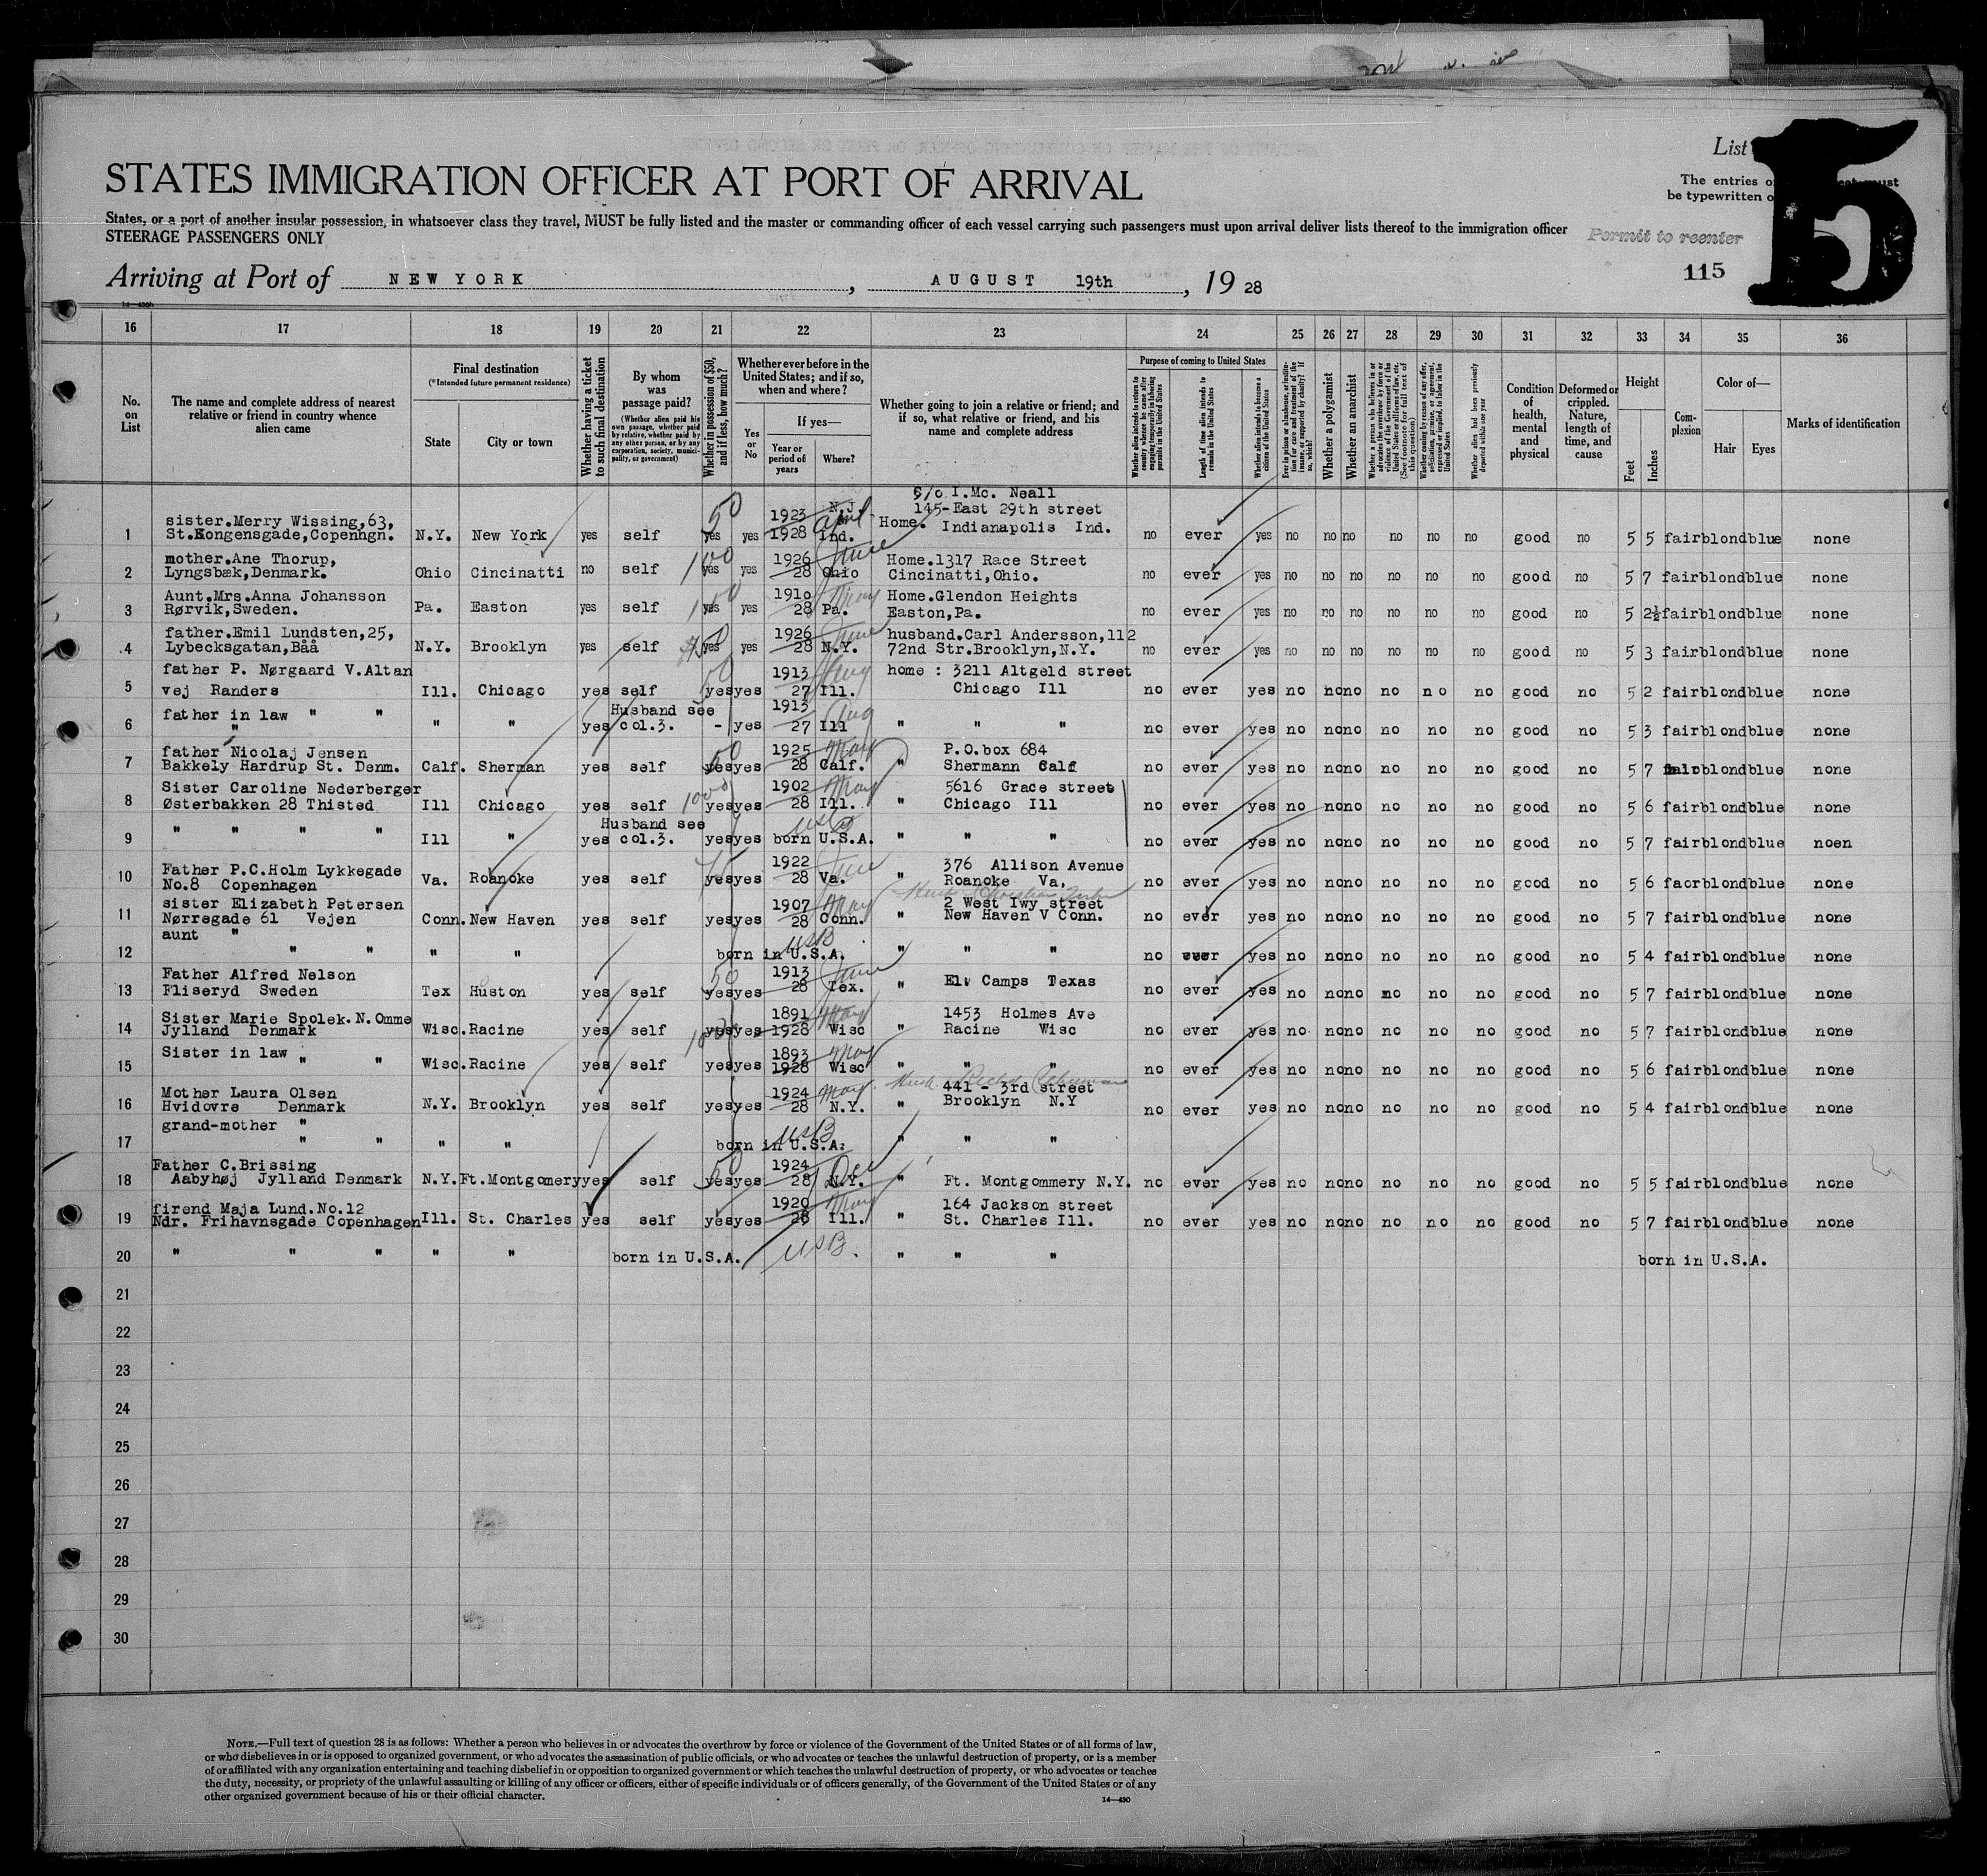 List
5
The entries o
be typewritten o
STATES IMMIGRATION OFFICER AT PORT OF ARRIVAL
States, or a port of another insular possession, in whatsoever class they travel, MUST be fully listed and the master or commanding officer of each vessel carrying such passengers must upon arrival deliver lists thereof to the immigration officer
STEERAGE PASSENGERS ONLY
Permit to reenter
115
Arriving at Port of NEW YORK, AUGUST 19th, 1928
16 17 18 19 20 21 22 23 24 25 26 27 28 29 30 31 32 33 34 35 36
No. on List
The name and complete address of nearest relative or friend in country whence alien came
Final destination
(*Intended future permanent residence)
State
City or town
Whether having a ticket to such final destination
By whom was passage paid?
(Whether alien paid his own passage, whether paid by relative, whether paid by any other person, or by any corporation, society, municipality, or government)
Whether in possession of $50, and if less, how much?
Whether ever before in the United States; and if so, when and where?
Yes or No
If yes—
Year or period of years
Where?
Whether going to join a relative or friend; and if so, what relative or friend, and his name and complete address
Purpose of coming to United States
Whether alien intends to return to country whence he came after engaging temporarily in laboring pursuits in the United States
Length of time alien intends to remain in the United States
Whether alien intends to become a citizen of the United States
Ever in prison or almshouse, or institution for care and treatment of the insane, or supported by charity? If so, which?
Whether a polygamist
Whether an anarchist
Whether a person who believes in or advocates the overthrow by force or violence of the Government of the United States or all forms of law, etc. (See footnote for full text of this question)
Whether coming by reason of any offer, solicitation, promise, or agreement, expressed or implied, to labor in the United States
Whether alien had been previously deported within one year
Condition of health, mental and physical
Deformed or crippled. Nature, length of time, and cause
Height
Feet
Inches
Complexion
Color of—
Hair
Eyes
Marks of identification
1 sister.Merry Wissing,63, St.Kongensgade,Copenhgn. N.Y. New York yes self yes 50 yes 1923 1928 N.J. Ind. April C/o I.Mc. Neall 145-East 29th street Home. Indianapolis Ind. no ever yes no no no no no no good no 5 5 fair blond blue none
2 mother.Ane Thorup, Lyngsbæk,Denmark. Ohio Cincinatti no self yes 100 yes 1926 28 Ohio June Home.1317 Race Street Cincinatti,Ohio. no ever yes no no no no no no good no 5 7 fair blond blue none
3 Aunt.Mrs.Anna Johansson Rørvik,Sweden. Pa. Easton yes self yes yes 1910 28 Pa. May Home.Glendon Heights Easton,Pa. no ever yes no no no no no no good no 5 2½ fair blond blue none
4 father.Emil Lundsten,25, Lybecksgatan,Båå N.Y. Brooklyn yes self yes $50 yes 1926 28 N.Y. June husband.Carl Andersson,112 72nd Str.Brooklyn,N.Y. no ever yes no no no no no no good no 5 3 fair blond blue none
5 father P. Nørgaard V.Altan vej Randers Ill. Chicago yes self yes 50 yes 1913 27 Ill. Aug home : 3211 Altgeld street Chicago Ill no ever yes no no no no no no good no 5 2 fair blond blue none
6 father in law " " " " " yes Husband see col.3. - yes 1913 27 Ill Aug " " " no ever yes no no no no no no good no 5 3 fair blond blue none
7 father Nicolaj Jensen Bakkely Hardrup St. Denm. Calf. Sherman yes self yes 50 yes 1925 28 Calf. May " P.O.box 684 Shermann Calf no ever yes no no no no no no good no 5 7 fair blond blue none
8 Sister Caroline Nederberger Østerbakken 28 Thisted Ill Chicago yes self 1000 yes yes 1902 28 Ill. May " 5616 Grace street Chicago Ill no ever yes no no no no no no good no 5 6 fair blond blue none
9 " " " " Ill " yes Husband see col.3. yes yes born U.S.A. " " " no ever yes no no no no no no good no 5 7 fair blond blue noen
10 Father P.C.Holm Lykkegade No.8 Copenhagen Va. Roanoke yes self yes 75 yes 1922 28 Va. June " 376 Allison Avenue Roanoke Va, no ever yes no no no no no no good no 5 6 faor blond blue none
11 sister Elizabeth Petersen Nørregade 61 Vejen Conn. New Haven yes self yes yes 1907 28 Conn. May " 2 West Iwy street New Haven V Conn. no ever yes no no no no no no good no 5 7 fair blond blue none
12 aunt " " " " " born in U.S.A. USB " " " no ever yes no no no no no no good no 5 4 fair blond blue none
13 Father Alfred Nelson Fliseryd Sweden Tex Huston yes self yes 50 yes 1913 28 Tex. June " El. Camps Texas no ever yes no no no no no no good no 5 7 fair blond blue none
14 Sister Marie Spolek.N.Omme Jylland Denmark Wisc. Racine yes self yes yes 1891 1928 Wisc May " 1453 Holmes Ave Racine Wisc no ever yes no no no no no no good no 5 7 fair blond blue none
15 Sister in law " " Wisc. Racine yes self yes yes 1893 1928 Wisc May " " " no ever yes no no no no no no good no 5 6 fair blond blue none
16 Mother Laura Olsen Hvidovre Denmark N.Y. Brooklyn yes self yes yes 1924 28 N.Y. May " 441 - 3rd street Brooklyn N.Y no ever yes no no no no no no good no 5 4 fair blond blue none
17 grand-mother " " " " " born in U.S.A. USB " " "
18 Father C.Brissing Aabyhøj Jylland Denmark N.Y. Ft.Montgomery yes self yes 50 yes 1924 28 N.Y. Dec " Ft. Montgommery N.Y. no ever yes no no no no no no good no 5 5 fair blond blue none
19 firend Maja Lund.No.12 Ndr. Frihavnsgade Copenhagen Ill. St. Charles yes self yes yes 1920 28 Ill. May " 164 Jackson street St. Charles Ill. no ever yes no no no no no no good no 5 7 fair blond blue none
20 " " " " " born in U.S.A. USB. " " " born in U.S.A.
21
22
23
24
25
26
27
28
29
30
NOTE.—Full text of question 28 is as follows: Whether a person who believes in or advocates the overthrow by force or violence of the Government of the United States or of all forms of law,
or who disbelieves in or is opposed to organized government, or who advocates the assassination of public officials, or who advocates or teaches the unlawful destruction of property, or is a member
of or affiliated with any organization entertaining and teaching disbelief in or opposition to organized government or which teaches the unlawful destruction of property, or who advocates or teaches
the duty, necessity, or propriety of the unlawful assaulting or killing of any officer or officers, either of specific individuals or of officers generally, of the Government of the United States or of any
other organized government because of his or their official character.
14—430